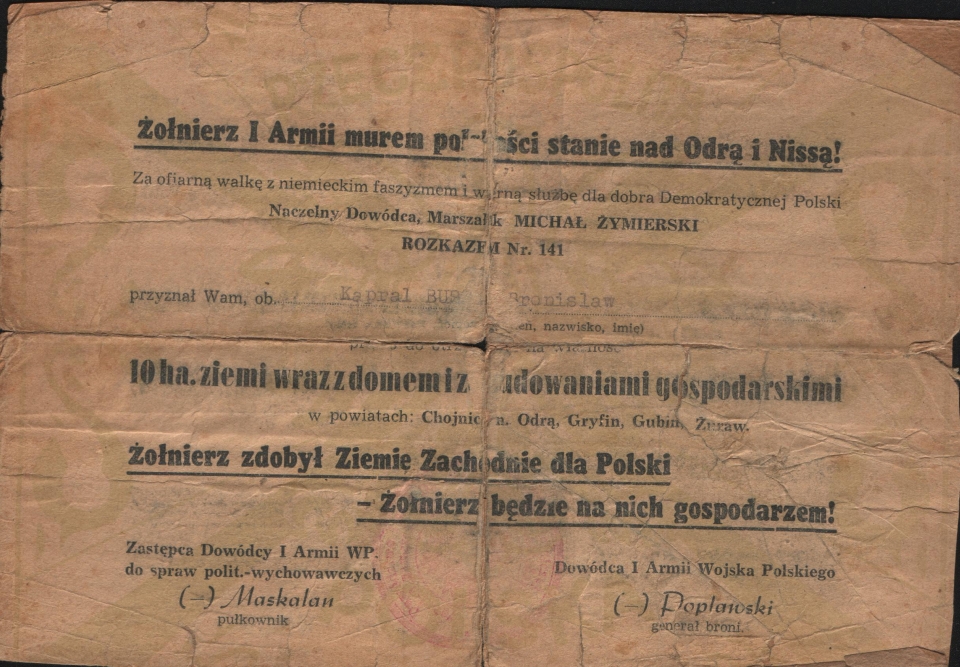 Żołnierz I Armii murem po ści stanie nad Odrą i Nissą!
Za ofiarną walkę z niemieckim faszyzmem i w rną służbę dla dobra Demokratycznej Polski
Naczelny Dowódca, Marszał k MICHAŁ ŻYMIERSKI
ROZKAZEM Nr. 141
przyznał Wam, ob. Kapral BUS Bronisław
nazwisko, imię)
10 ha. ziemi wraz z domem i z udowaniami gospodarskimi
w powiatach: Chojnic n. Odrą, Gryfin, Gubin, Żuraw.
Żołnierz zdobył Ziemię Zachodnie dla Polski
– Żołnierz będzie na nich gospodarzem!
Zastępca Dowódcy I Armii WP.
do spraw polit.-wychowawczych
(—) Maskalan
pułkownik
Dowódca I Armii Wojska Polskiego
(—) Popławski
generał broni.